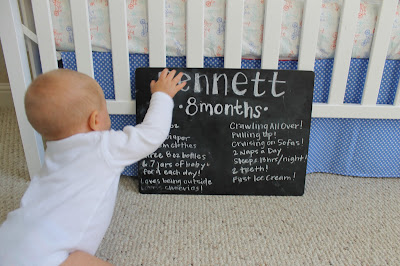 ennett
8 months
oz
aper
clothes
8oz bottles
& 7 jars of baby
food each day!
Loves being outside
cheerios!
Crawling All Over!
Pulling Up!
Cruising on Sofas!
2 Naps a Day
Sleeps 12hrs/night!
2 teeth!
First Ice Cream!